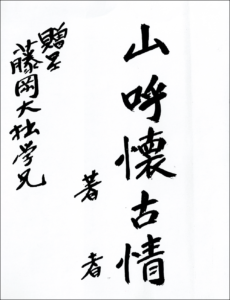 山呼懐古情
著者
贈呈
藤岡大拙学兄